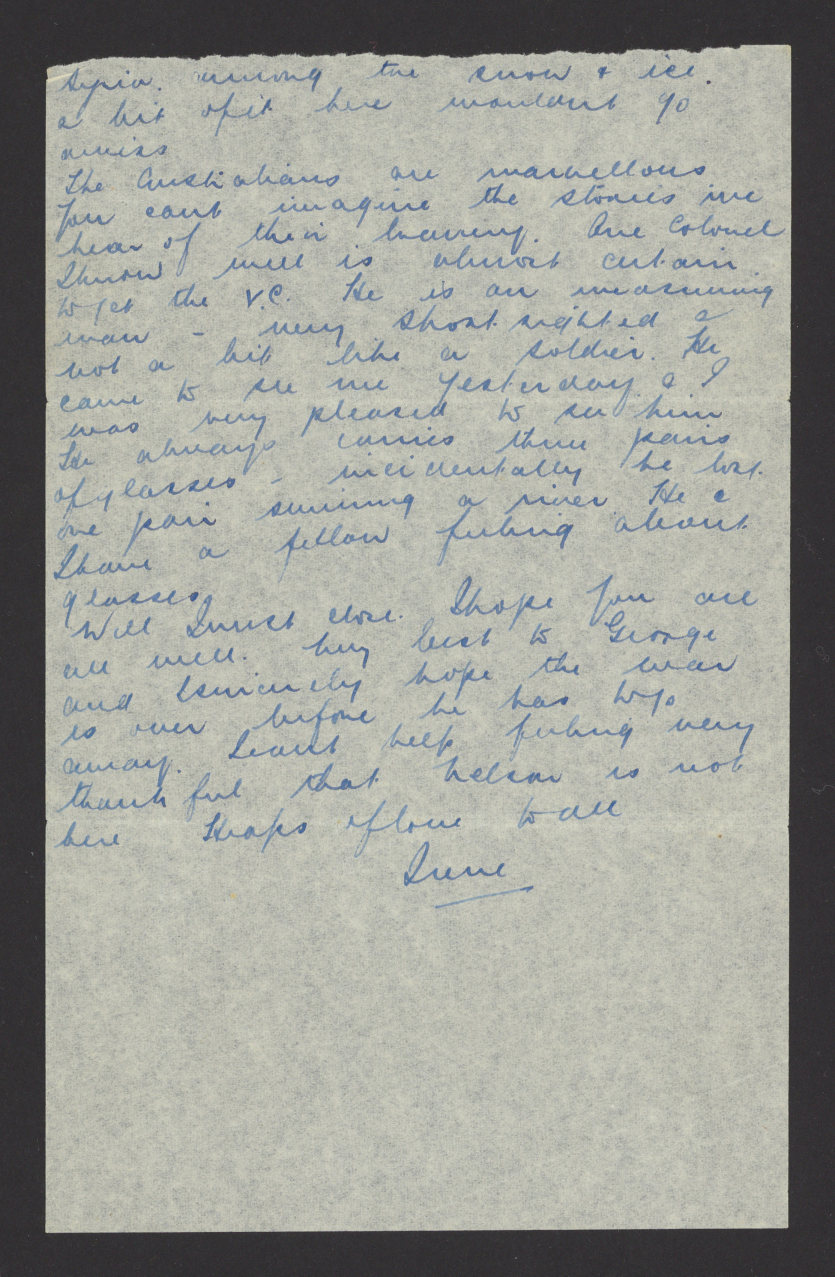 Syria. among the snow & ice.
a bit of it here wouldnt go
amiss
The Australians are marvellous
You cant imagine the stories we
hear of their bravery. One Colonel
I know well is almost certain
to get the V.C. He is an unassuming
man - very short sighted &
not a bit like a soldier. He
came to see me yesterday & I
was very pleased to see him
He always carries three pairs
of glasses - incidentally he lost
one pair swimming a river. He &
I have a fellow feeling about
glasses.
Well I must close. I hope you are
all well. My best to George
and I sincerely hope the war
is over before he has to go
away. I cant help feeling very
thankful that Nelson is not
here Heaps of love to all
Irene